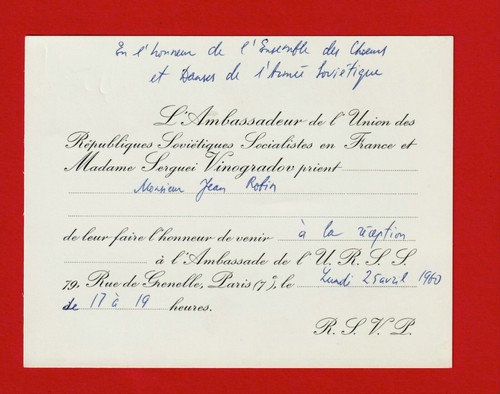 En l'honneur de l'Ensemble des Choeurs
et Danses de l'Armée Soviétique
L'Ambassadeur de l'Union des
Républiques Soviétiques Socialistes en France et
Madame Serguei Vinogradov prient
Monsieur Jean Robin
de leur faire l'honneur de venir à la réception
à l'Ambassade de l'U. R. S. S.
79, Rue de Grenelle, Paris (7e), le Lundi 25 avril 1960
de 17 à 19 heures.
R. S. V. P.